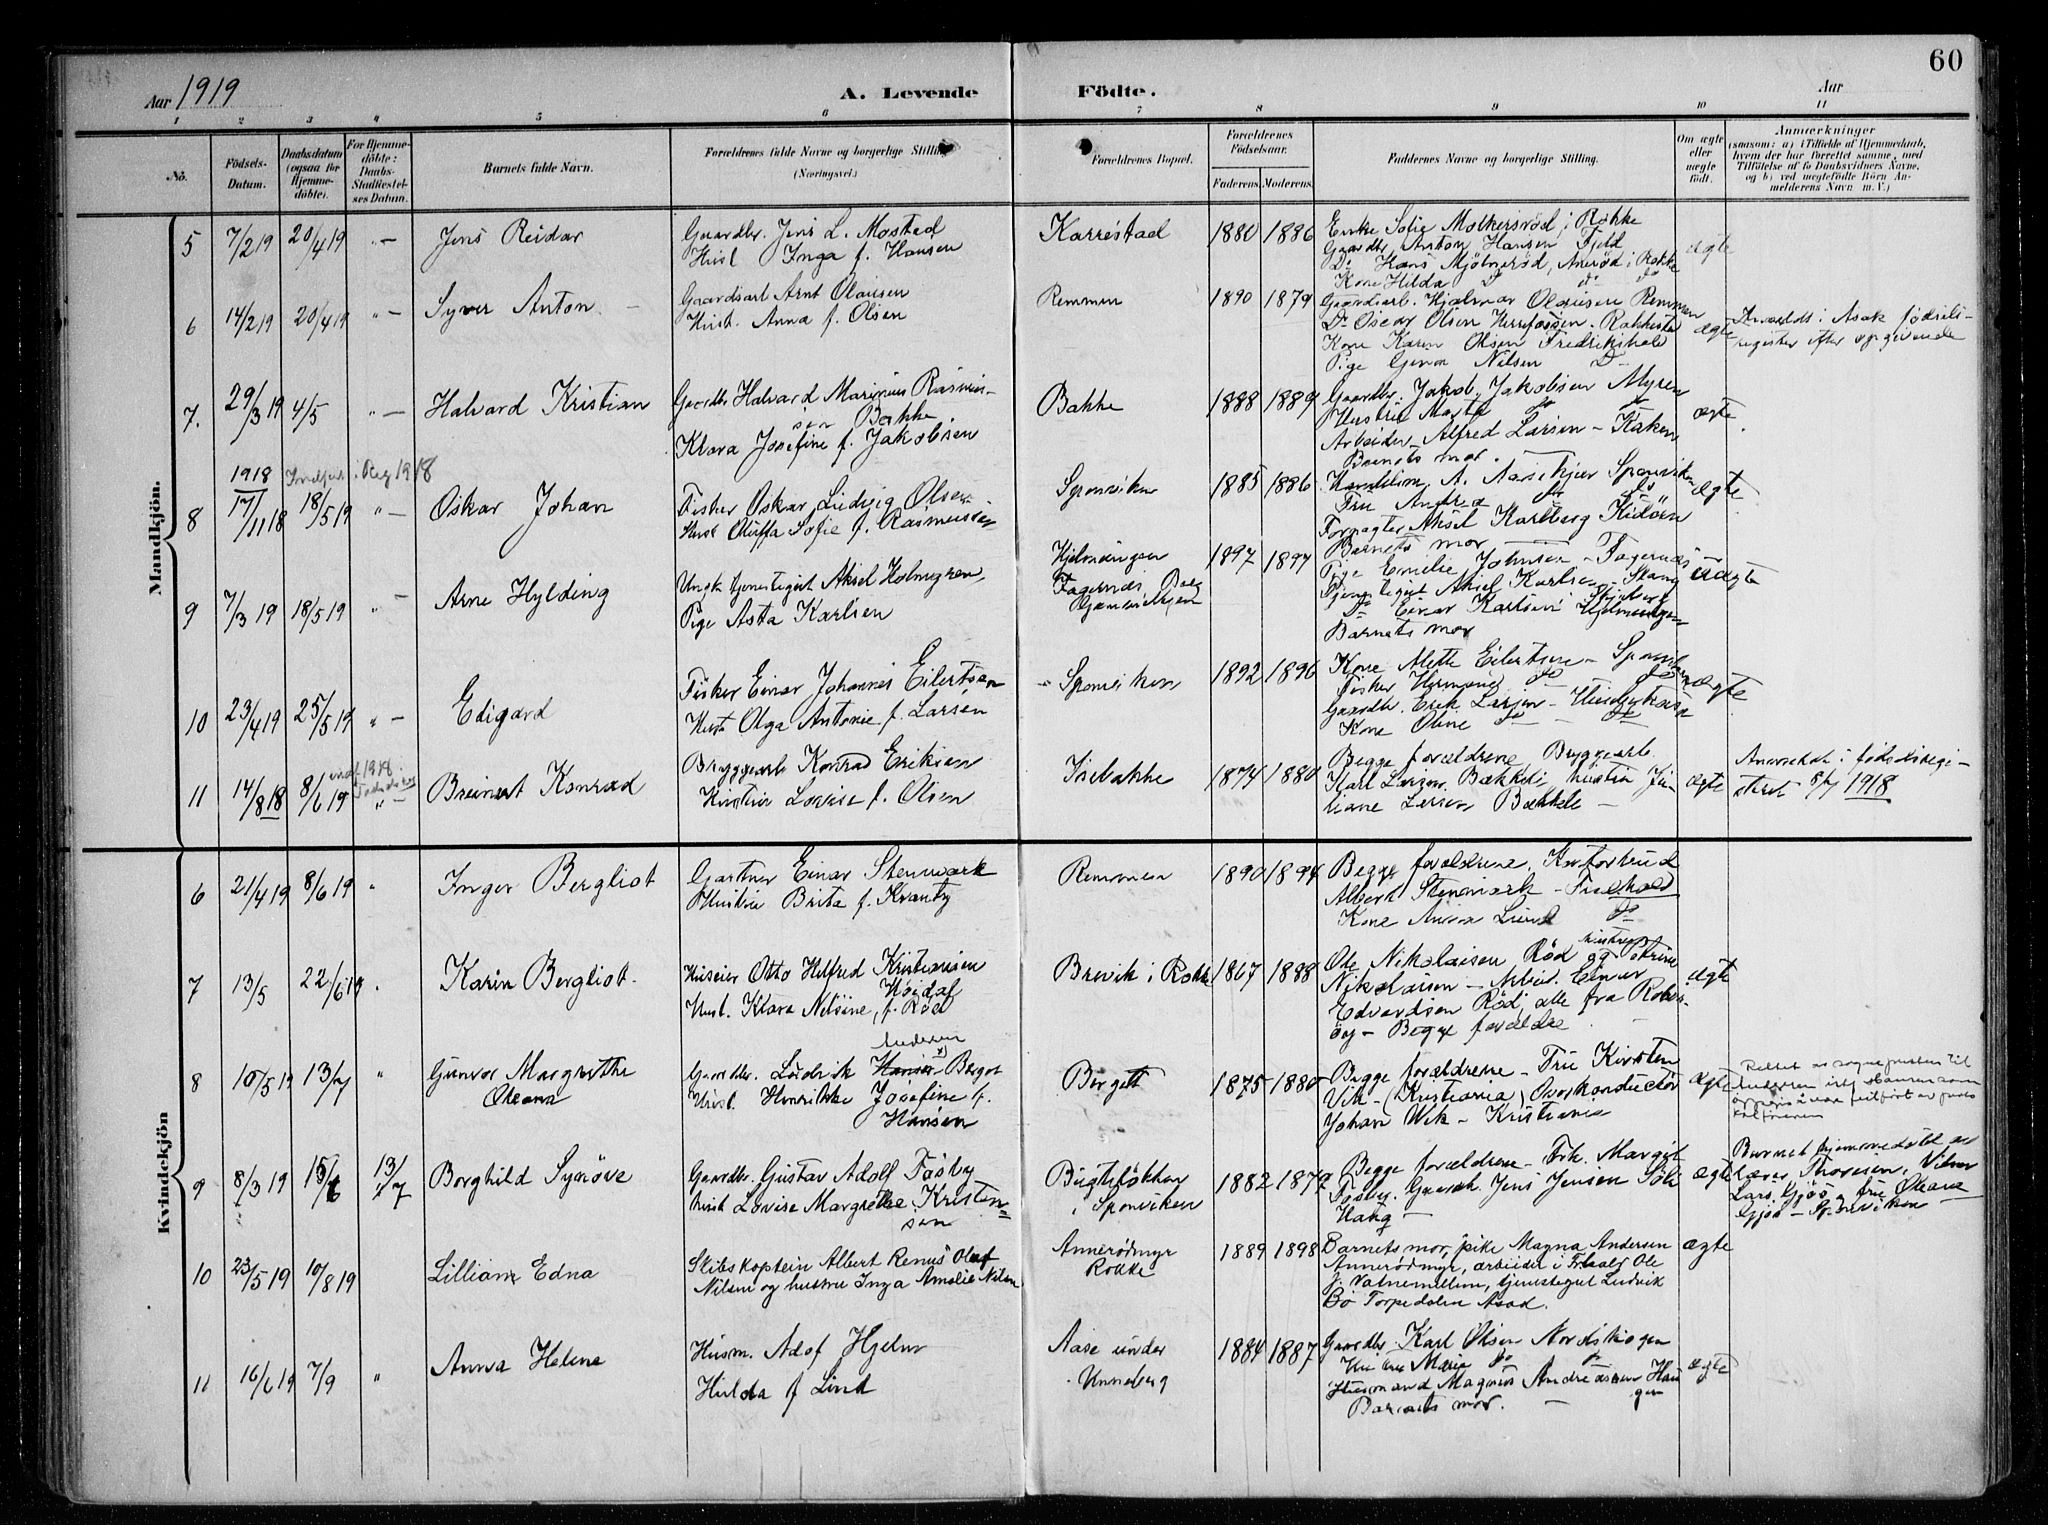 60
Aar 1919
A. Levende Födte.
Aar
1 2 3 4 5 6 7 8 9 10 11
No.
Födsels-Datum.
Daabsdatum (ogsaa for Hjemme-döbte).
For Hjemme-döbte: Daabs-Stadfæstel-ses Datum.
Barnets fulde Navn.
Forældrenes fulde Navne og borgerlige Stilling
(Næringsvei.)
Forældrenes Bopæl.
Forældrenes Födselsaar.
Faderens. Moderens.
Faddernes Navne og borgerlige Stilling.
Om ægte eller uægte födt.
Anmærkninger
(saasom: a) i Tilfælde af Hjemmedaab, hvem der har forrettet samme, med Tilföielse af to Daabsvidners Navne, og b) ved uægtefödte Börn An-melderens Navn m. V.)
Mandkjön.
5 7/2 19 20/4 19 "- Jens Reidar
Gaardbr. Jens L. Mostad
Hust Inga f. Hansen
Karrestad 1880 1886
Enke Sofie Molkersröd i Rokke
Gaardbr. Anton Hansen Fjeld
Do Hans Mjölnerød, i Rokke
Kone Hilda Do do
ægte
6 14/2 19 20/4 19 "- Syver Anton
Gaardsarb Arnt Olausen
Hust. Anna f. Olsen
Remmen 1890 1879
Gaardsarb. Hjalmar Olausen Remmen
Do Oscar Olsen
Kone Karen Olsen Fredrikshald
Pige Nilsen Do
ægte
i Asak födsels-
register efter opgivende
7. 29/3 19 4/5 "- Halvard Kristian
Gaardbr Halvard Marinius Rasmus-
sen Bakke.
Klara Josefine f. Jakobsen
Bakke 1888 1889
Gaardbr. Jakob Jakobsen Myren
Hustru Marta do do
Arbeider Alfred Larsen – Kaken
Barnets mor.
ægte
8 1918 17/11 18 18/5 19 "- Oskar Johan
i Reg 1918
Fisker Oskar Ludvig Olsen
Hust Sofie f. Rasmussen
Sponviken 1885 1886
A. Sponviken
Fru Andrea do do
Forpagter Aksel Karlberg Kidörn
Barnets mor
ægte
9 7/3 19 18/5 19 "- Arne Hylding
Ungk tjenestegut Aksel Holmgren,
Pige Asta Karlsen
Hjelmungen
Fagernæs
1897 1897
Pige Emelie Johnsen – Fagernæs
Tjenestegut Aksel Karlsen – Stang
Do Einar Karlsen Hjelmungen
Barnets mor
uægte
10 23/4 19 25/5 19 "- Edigard
Fisker Einar Johannes Eilertsen
Hust Olga Antonie f. Larsen
Sponviken 1892 1896
Kone Alette Eilertsen – Sponviken
Fisker Herman do do
Gaardbr. Erik Larsen –
Kone Oline do do
ægte
11 14/8 18 8/6 19 "- Breinert Konrad
indf. 1918
Bryggearb Konrad Eriksen
Hustru Lovise f. Olsen
Isebakke 1874 1880
Begge forældrene Bryggearb.
Karl Larsen Bække, hustru Ju-
liane Larsen Bække –
ægte
Anmeldt i födselsregi-
stret 8/7 1918
Kvindekjön
6 21/4 19 8/6 19 " Inger Bergliot
Gartner Einar Stenmark
Hustru Brita f. Kvanty
Remmen 1890 1894
Begge forældrene,
Albert Stenmark – F.hald
Kone Anna Lund do
7 13/5 22/6 19 . Karin Bergliot.
Huseier Otto Hilfred Kristiansen
Hust. Klara Nilsine, f. Röd
Brevik i Rokke 1867 1888
Ole Nikolaisen Röd og hustru Petrine
Nikolaisen – Arbeid. Einar
Edvardsen Röd, alle fra
öy – Begge forældre.
ægte
8 10/5 19 13/7 " Gunvor Margrethe
Oleana
Gaardbr. Ludvik Hansen Andersen x) Berget
Hust. Henrikke Josefine f.
Hansen
Berget 1875 1880
Begge forældrene – Fru Kirsten
Vik – (Kristiania) Overkonductör
Johan Wik – Kristiania
ægte
Rettet av sognepresten til
Andersen istf Hansen som
feilfört av
9 8/3 19 15/6 13/7 Borghild Synöve
Gaardbr. Gustav Adolf Fosby
Hust Lovise Margrethe Kristen-
sen
Bugteløkken
i Sponviken
1882 1879
Begge forældrene – Frk. Margit
Fosby. Gaardb. Jens Jensen
Haug –
ægte
Barnet hjemmedöbt av
Lærer Thoresen. Vidner
Lars Gjös og fru Oleana
Gjös – Sponviken
10 23/5 19 10/8 19 Lilliann Edna
Skibskaptein Albert Remus Olaf
Nilsen og hustru Inga Amalie Nilsen
Annerödmyr
Rokke
1889 1898
Barnets mor, pike Magna Andersen
Annerödmyr, arbeider i F.hald Ole
J. Vatnemellem, tjenestegut Ludvik
Bö Torpedalen Asak.
ægte
11 16/6 19 7/9 " Anna Helene
Husm. Adof Hjelm
Hulda f Lind
Aase under
Unneberg
1884 1887
Gaardbr. Karl Olsen Nordskogen
Hustru Maria do do
Husmand Magnus Andreasen Hau-
gen
Barnets mor. –
ægte